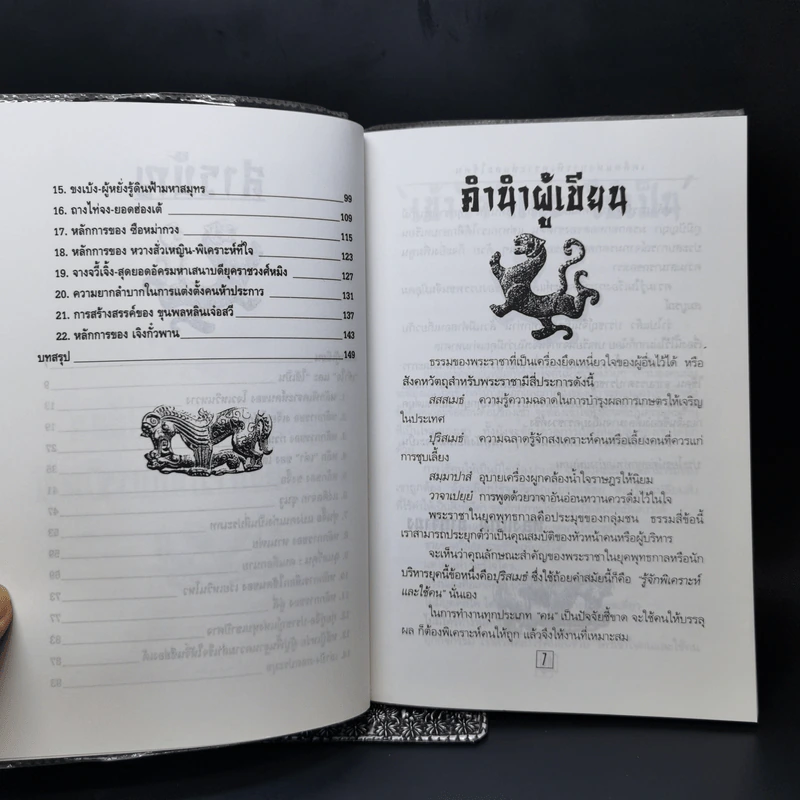 15. ขงเบ้ง-ผู้หยั่งรู้ดินฟ้ามหาสมุทร 99
16. ถางไท่จง-ยอดฮ่องเต้ 109
17. หลักการของ ซือหม่ากวง 115
18. หลักการของ หวางสั่วเหญิน-พิเคราะห์ที่ใจ 123
19. จางจวี้เจิ้ง-สุดยอดอัครมหาเสนาบดียุคราชวงศ์หมิง 127
20. ความยากลำบากในการแต่งตั้งคนห้าประการ 131
21. การสร้างสรรค์ของ ขุนพลหลินเจ๋อสวี 137
22. หลักการของ เจิงกั๋วพาน 143
บทสรุป 149
คำนำผู้เขียน
ธรรมของพระราชาที่เป็นเครื่องยึดเหนี่ยวใจของผู้อื่นไว้ได้ หรือ
สังคหวัตถุสำหรับพระราชามีสี่ประการดังนี้
สสฺสเมธํ ความรู้ความฉลาดในการบำรุงผลการเกษตรให้เจริญ
ในประเทศ
ปุริสเมธํ ความฉลาดรู้จักสงเคราะห์คนหรือเลี้ยงคนที่ควรแก่
การชุบเลี้ยง
สมฺมาปาสํ อุบายเครื่องผูกคล้องน้ำใจราษฎรให้นิยม
วาจาเปยฺยํ การพูดด้วยวาจาอันอ่อนหวานควรดื่มไว้ในใจ
พระราชาในยุคพุทธกาลคือประมุขของกลุ่มชน ธรรมสี่ข้อนี้
เราสามารถประยุกต์ว่าเป็นคุณสมบัติของหัวหน้าคนหรือผู้บริหาร
จะเห็นว่าคุณลักษณะสำคัญของพระราชาในยุคพุทธกาลหรือนัก
บริหารยุคนี้ข้อหนึ่งคือปุริสเมธํ ซึ่งใช้ถ้อยคำสมัยนี้ก็คือ "รู้จักพิเคราะห์
และใช้คน" นั่นเอง
ในการทำงานทุกประเภท "คน" เป็นปัจจัยชี้ขาด จะใช้คนให้บรรลุ
ผล ก็ต้องพิเคราะห์คนให้ถูก แล้วจึงให้งานที่เหมาะสม
7